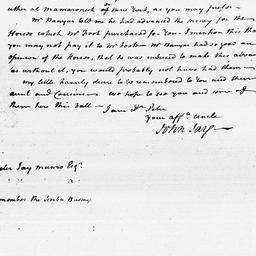 either at Mamaroneck or New York, as you may prefer —
Mr Banyar told me he had advanced the money for the
Horses which Mr Foot purchased for you. I mention this that
you may not pay it to Mr Foot — Mr Banyar had so good an
opinion of the Horses, that he was induced to make this advance
as without it, you would probably not have had them —
my little family desire to be remembered to you and their
aunt and Cousins — we hope to see you and some of
them here this Fall — I am Dr Peter
your affte uncle
John Jay —
Peter Jay Munro Esqr